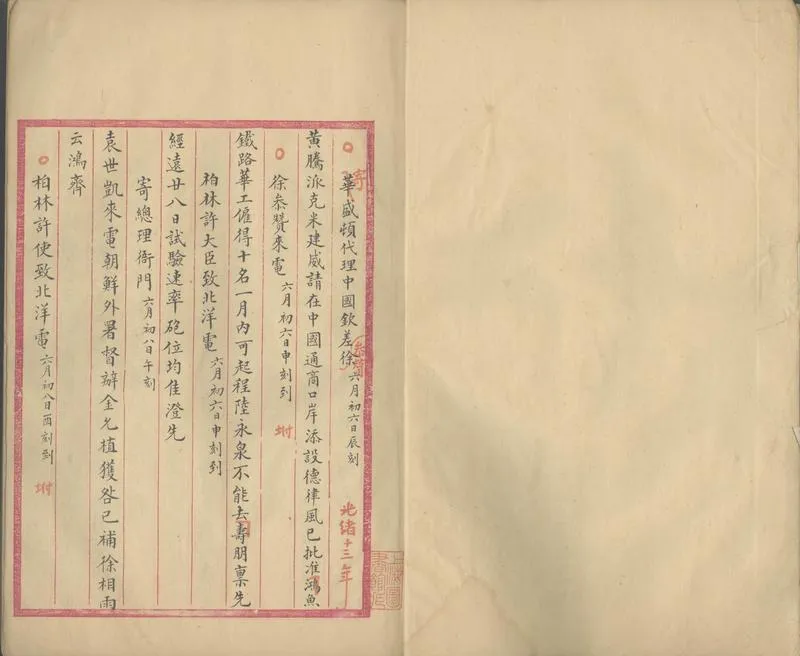 寄華盛頓代理中國欽差徐參贊六月初六日辰刻 光緒十三年
黃騰派克米建威請在中國通商口岸添設德律風已批准鴻魚
徐叅贊來電六月初六日申刻到 坿
鐵路華工僱得十名一月內可起程陸永泉不能去壽朋稟先
柏林許大臣致北洋電六月初六日申刻到
經遠廿八日試驗速率砲位均佳澄先
寄總理衙門六月初八日午刻
袁世凱來電朝鮮外署督辦金允植獲咎已補徐相雨
云鴻齊
柏林許使致北洋電六月初八日酉刻到 坿